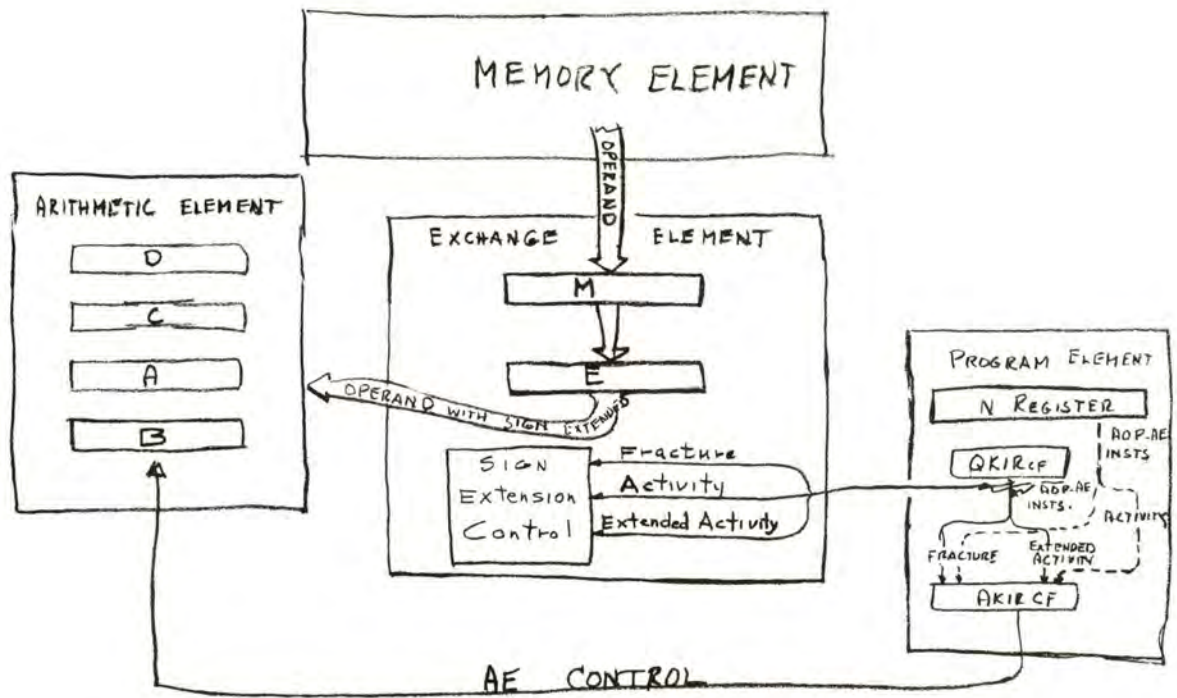 MEMORY ELEMENT
OPERAND
ARITHMETIC ELEMENT
D
C
A
B
EXCHANGE ELEMENT
M
E
OPERAND WITH SIGN EXTENDED
SIGN
EXTENSION
CONTROL
Fracture
Activity
Extended Activity
PROGRAM ELEMENT
N REGISTER
AOP-AE
INSTS
QKIRCF
AOP-AE
INSTS.
ACTIVITY
FRACTURE
EXTENDED
ACTIVITY
AKIRCF
AE CONTROL